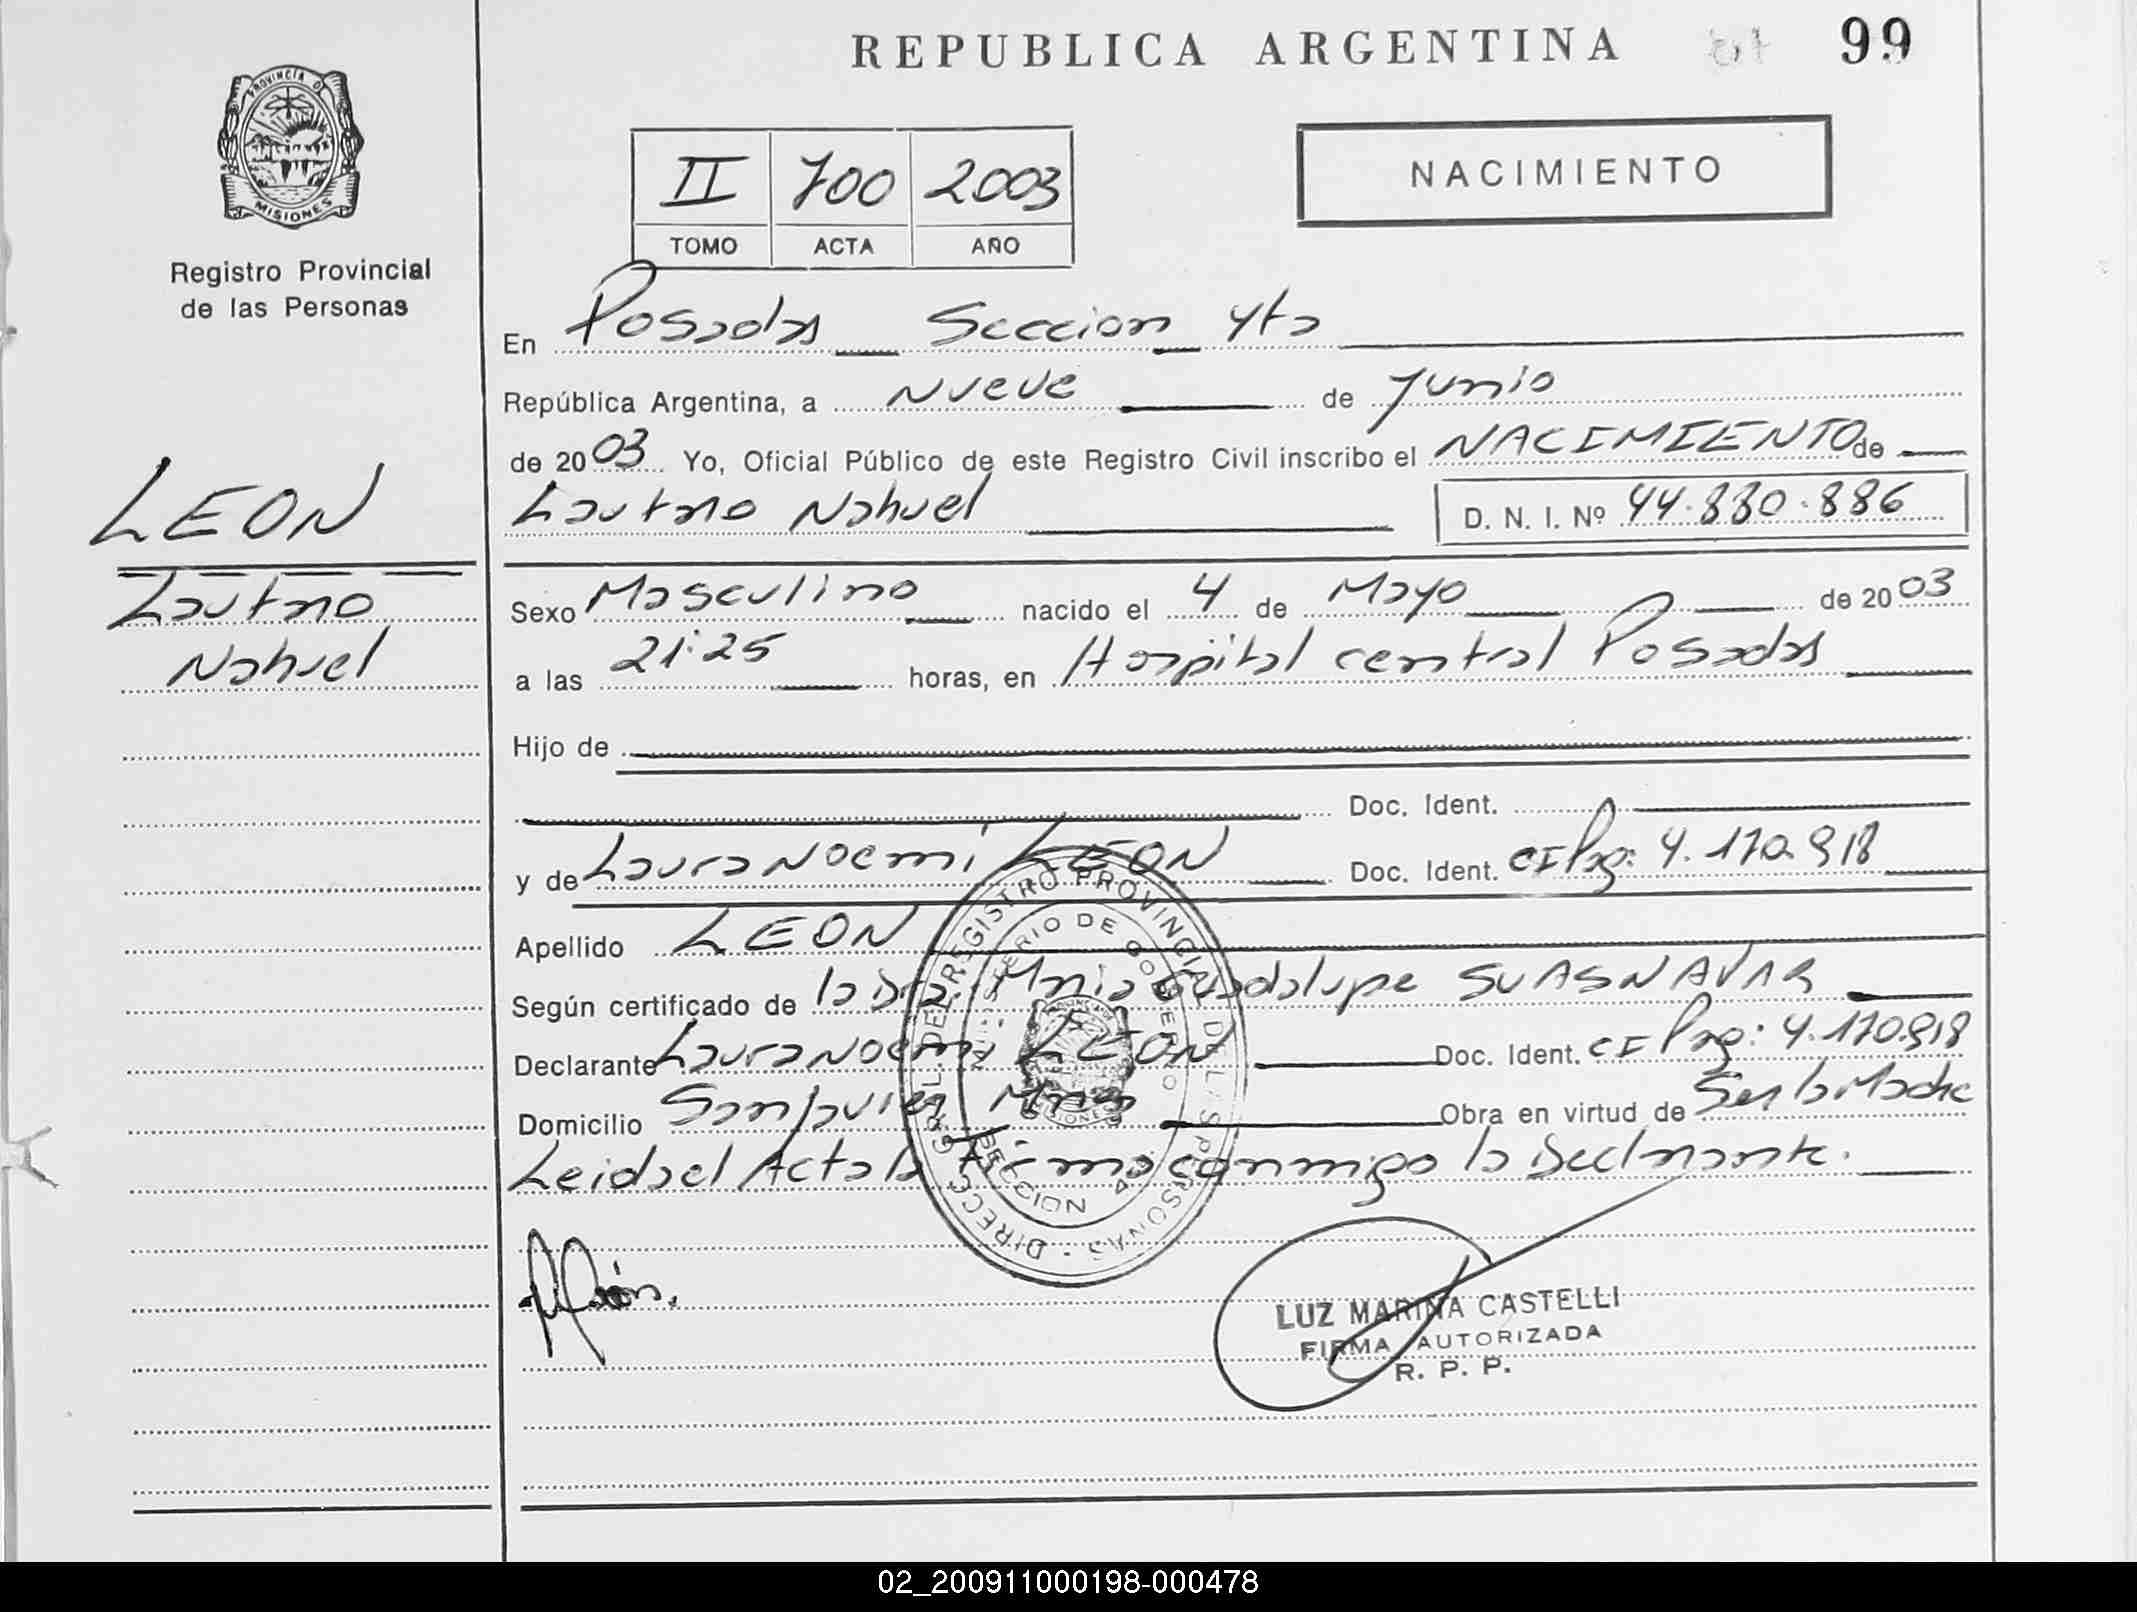 REPUBLICA ARGENTINA 99
PROVINCIA D MISIONES
Registro Provincial
de las Personas
II 700 2003
TOMO ACTA AÑO
NACIMIENTO
En Posadas Seccion 4ta
República Argentina, a Nueve de Junio
de 2003 Yo, Oficial Público de este Registro Civil inscribo el NACIMIENTO de
Lautaro Nahuel D. N. I. Nº 44.880.886
LEON
Lautaro
Nahuel
Sexo Masculino nacido el 4 de Mayo de 2003
a las 21:25 horas, en Hospital central Posadas
Hijo de
Doc. Ident.
y de Laura Noemi LEON Doc. Ident. CI Pag: 4.170.918
Apellido LEON
Según certificado de la Dra. Maria Guadalupe SUASNAVAR
Declarante Laura Noemi LEON Doc. Ident. CI Pag: 4.170.918
Domicilio Obra en virtud de Ser la Madre
Leida el Acta la Firma conmigo la Declarante.
DIRECC. GRAL. DEL REGISTRO PROVINCIAL DE LAS PERSONAS
MINISTERIO DE GOBIERNO
SECCION 4a
LUZ MARINA CASTELLI
FIRMA AUTORIZADA
R. P. P.
02_200911000198-000478